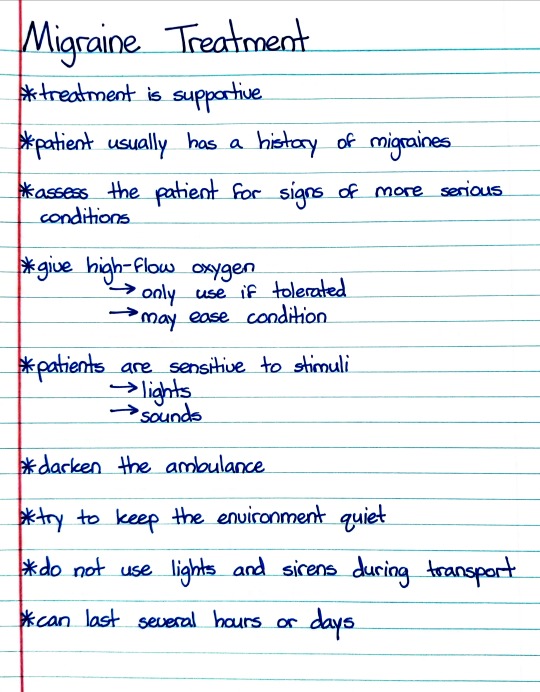 Migraine Treatment
*treatment is supportive
*patient usually has a history of migraines
*assess the patient for signs of more serious
conditions
*give high-flow oxygen
→only use if tolerated
→may ease condition
*patients are sensitive to stimuli
→lights
→sounds
*darken the ambulance
*try to keep the environment quiet
*do not use lights and sirens during transport
*can last several hours or days